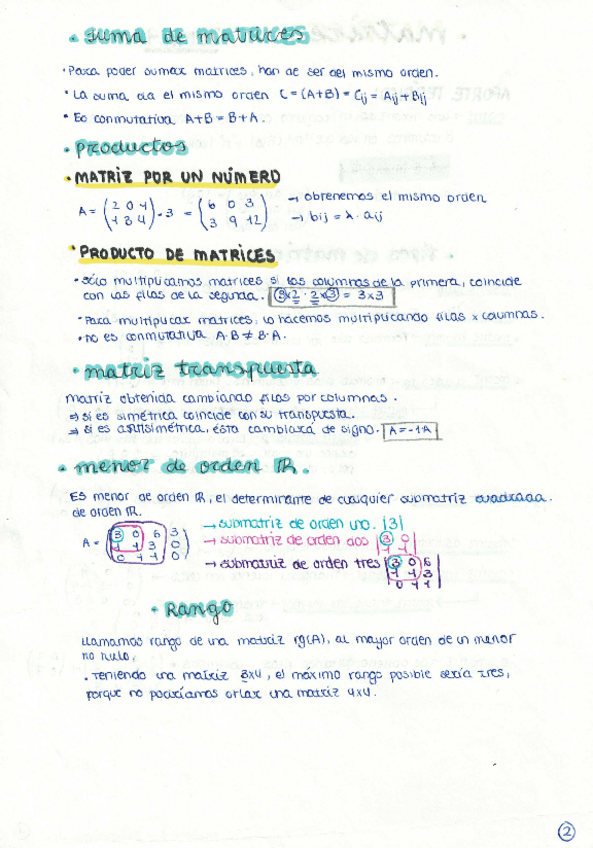 • Suma de matrices
• Para poder sumar matrices, han de ser del mismo orden.
• La suma da el mismo orden C = (A+B) = Cij = Aij + Bij
• Es conmutativa A+B = B+A.
• Productos
• MATRIZ POR UN NÚMERO
A = (2 0 1 / 1 3 4) · 3 = (6 0 3 / 3 9 12) → obtenemos el mismo orden
→ bij = λ · aij
• PRODUCTO DE MATRICES
• Sólo multiplicamos matrices si las columnas de la primera, coincide
con las filas de la segunda. 3x2 · 2x3 = 3x3
• Para multiplicar matrices, lo hacemos multiplicando filas x columnas.
• No es conmutativa A·B ≠ B·A.
• matriz transpuesta
Matriz obtenida cambiando filas por columnas.
⇒ si es simétrica coincide con su transpuesta.
⇒ si es antisimétrica, ésta cambiará de signo. A = -1·A
• menor de orden R.
Es menor de orden R, el determinante de cualquier submatriz cuadrada
de orden R.
→ submatriz de orden uno. |3|
A = (3 0 6 3 / 1 1 3 0 / 0 1 1 0) → submatriz de orden dos |3 0 / 1 1|
→ submatriz de orden tres |3 0 6 / 1 1 3 / 0 1 1|
• Rango
Llamamos rango de una matriz rg(A), al mayor orden de un menor
no nulo.
• Teniendo una matriz 3x4, el máximo rango posible sería tres,
porque no podríamos orlar una matriz 4x4.
2